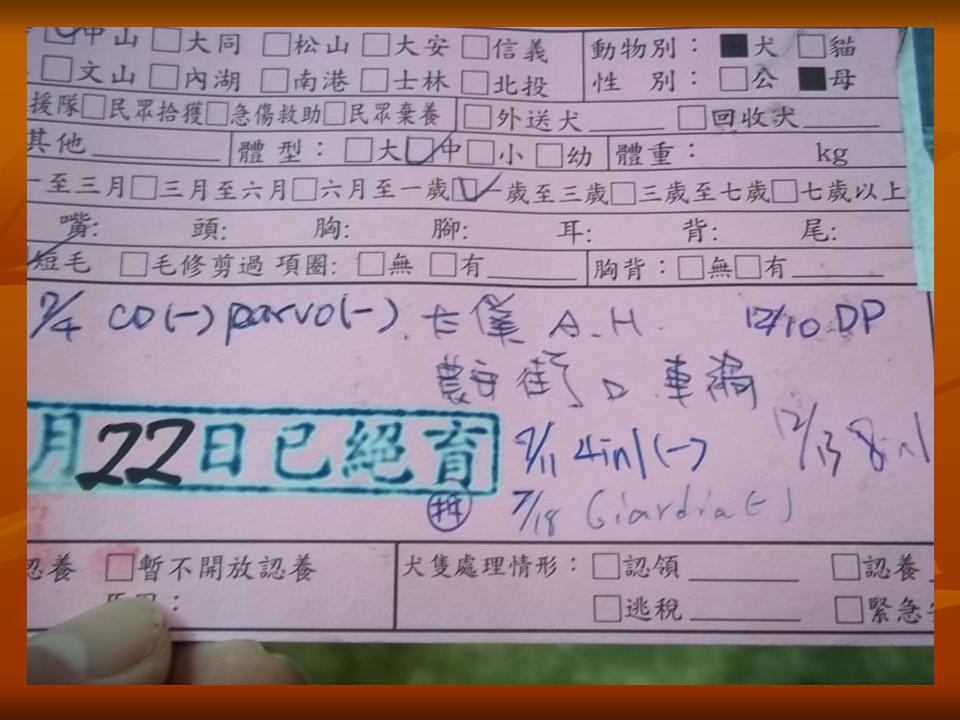 中山 □大同 □松山 □大安 □信義 動物別：■犬 □貓
□文山 □內湖 □南港 □士林 □北投 性 別：□公 ■母
援隊□民眾拾獲□急傷救助□民眾棄養 □外送犬 □回收犬
其他 體型：□大☑中□小 □幼 體重： kg
一至三月□三月至六月□六月至一歲☑一歲至三歲□三歲至七歲□七歲以上
嘴: 頭: 胸: 腳: 耳: 背: 尾:
短毛 □毛修剪過 項圈: □無 □有 胸背：□無□有
7/4 CD(-) parvo(-) 卡僕 A.H. 12/10 DP
農安街口車禍
月22日已絕育 7/11 4in1(-) 12/13 8in1
7/18 Giardia(-)
認養 □暫不開放認養 犬隻處理情形：□認領 □認養
□逃稅 □緊急